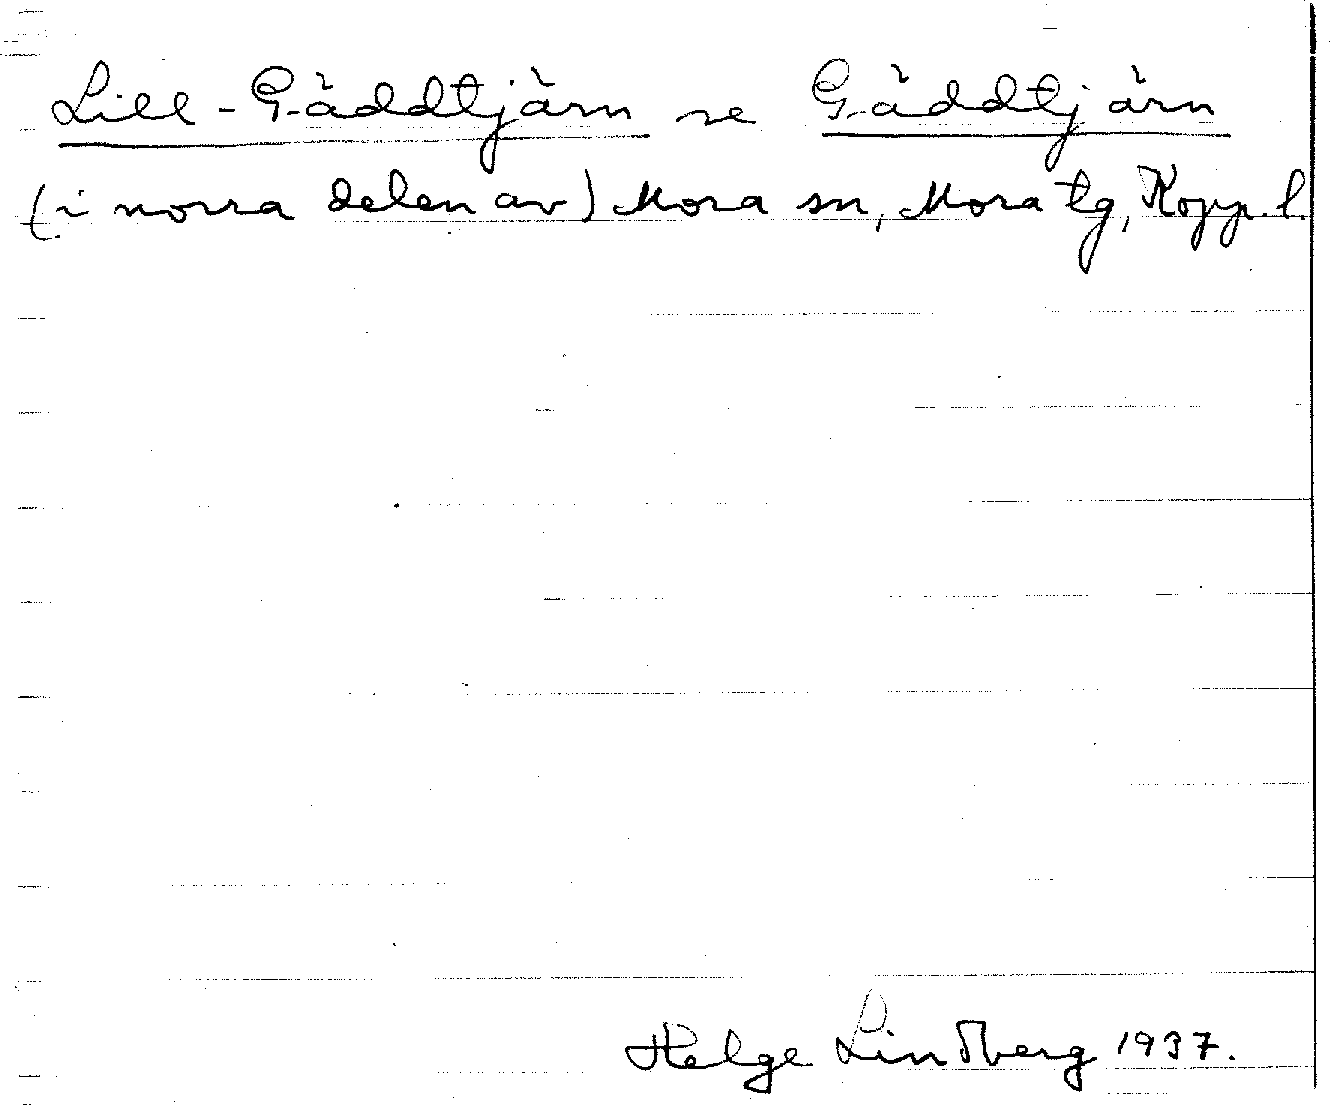 Lill-Gäddtjärn se Gäddtjärn
(i norra delen av) Mora sn, Mora tg, Kopp. l.
Helge Lindberg 1937.